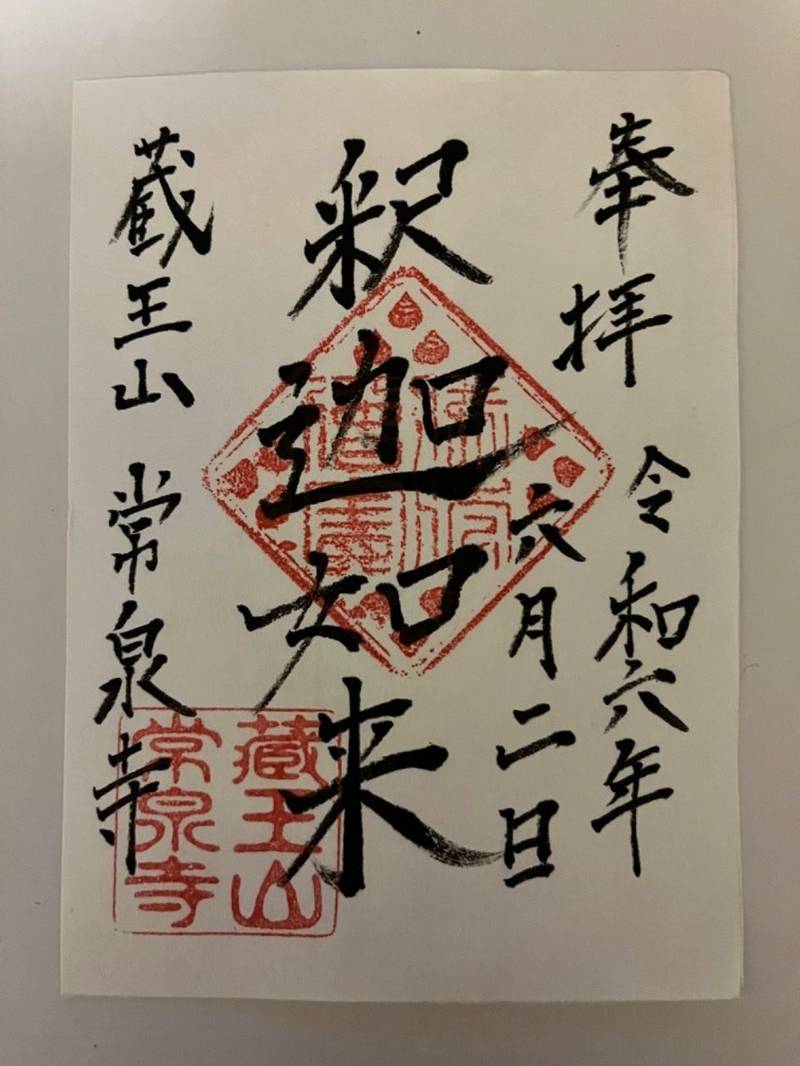 奉拝
令和六年
六月二日
釈迦如来
蔵王山 常泉寺
蔵王山
常泉寺